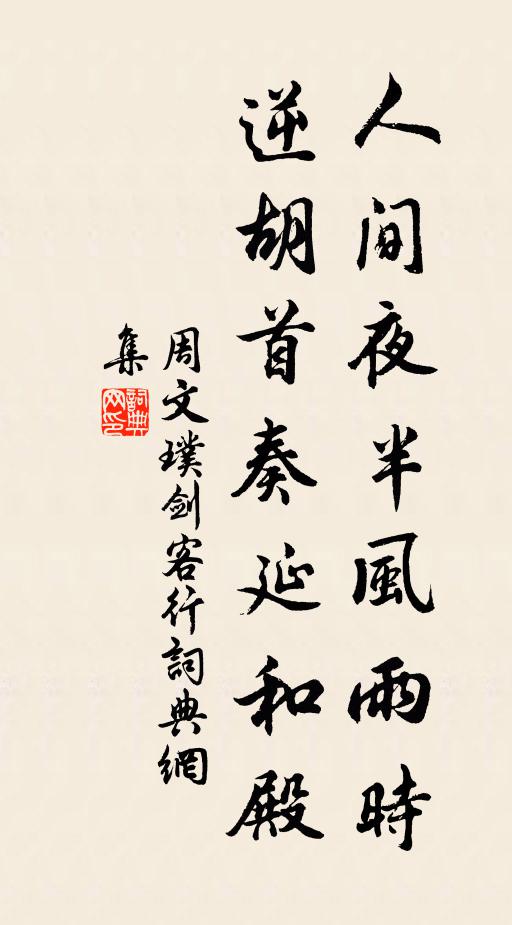 人間夜半風雨時
逆胡首奏延和殿
周文璞劍客行詞典網
集
詞典
网印